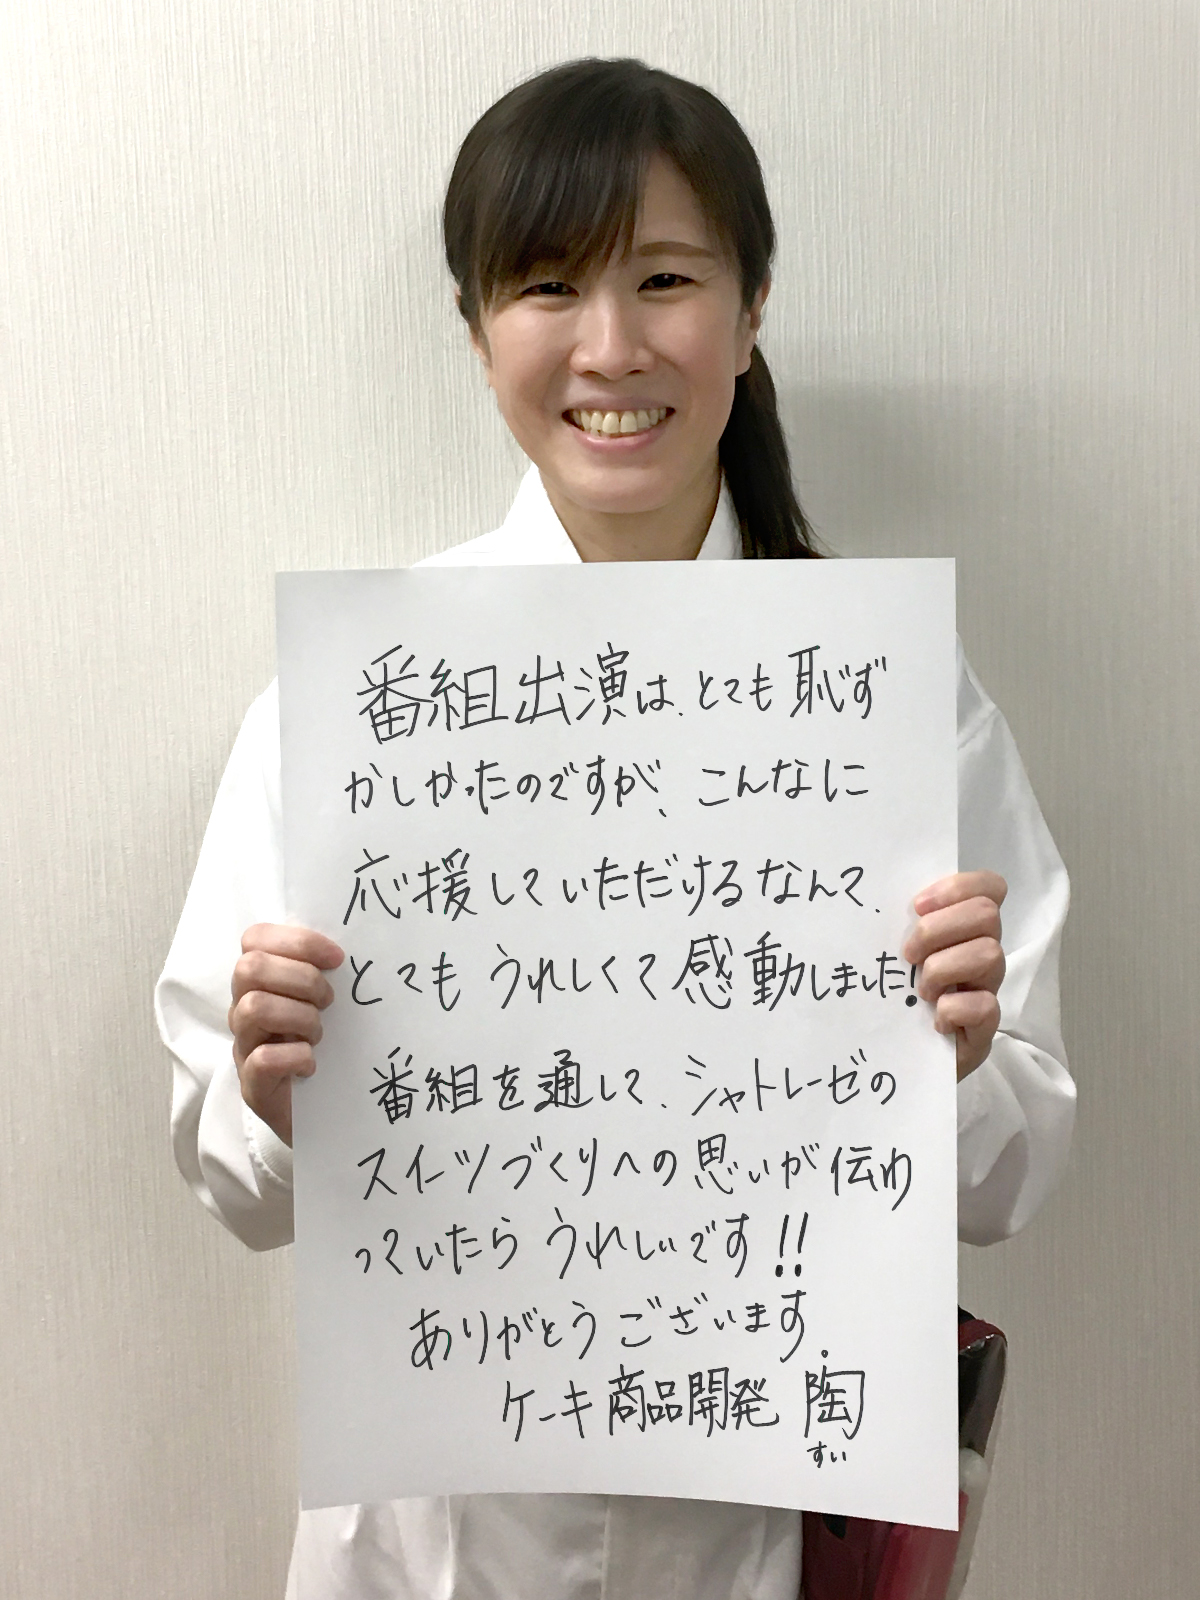 番組出演は、とても恥ず
かしかったのですが、こんなに
応援していただけるなんて、
とてもうれしくて感動しました!
番組を通して、シャトレーゼの
スイーツづくりへの思いが伝わ
っていたらうれしいです!!
ありがとうございます。
ケーキ商品開発 陶
すい